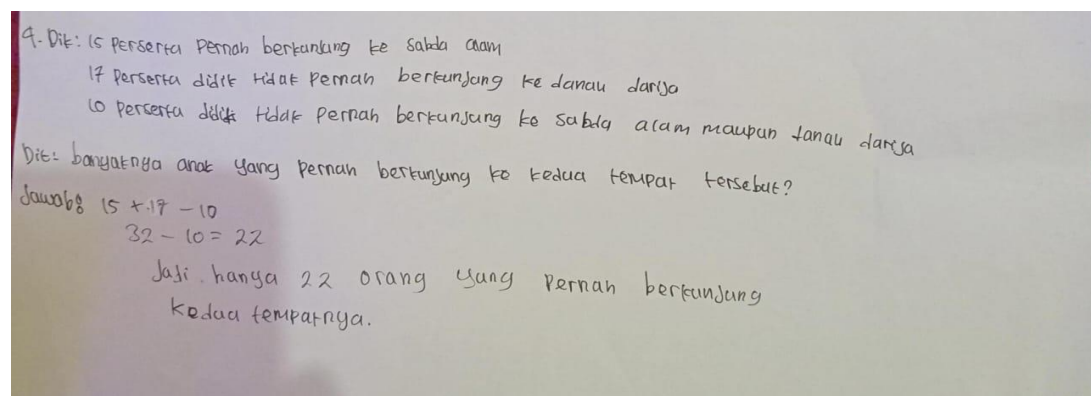 4. Dik: 15 perserta pernah berkunjung ke sabda alam
17 perserta didik tidak pernah berkunjung ke danau darija
10 perserta didik tidak pernah berkunjung ke sabda alam maupun danau darisa
Dit: banyaknya anak yang pernah berkunjung ke kedua tempat tersebut?
Jawab: 15 + 17 - 10
32 - 10 = 22
Jadi hanya 22 orang yang pernah berkunjung
kedua tempatnya.